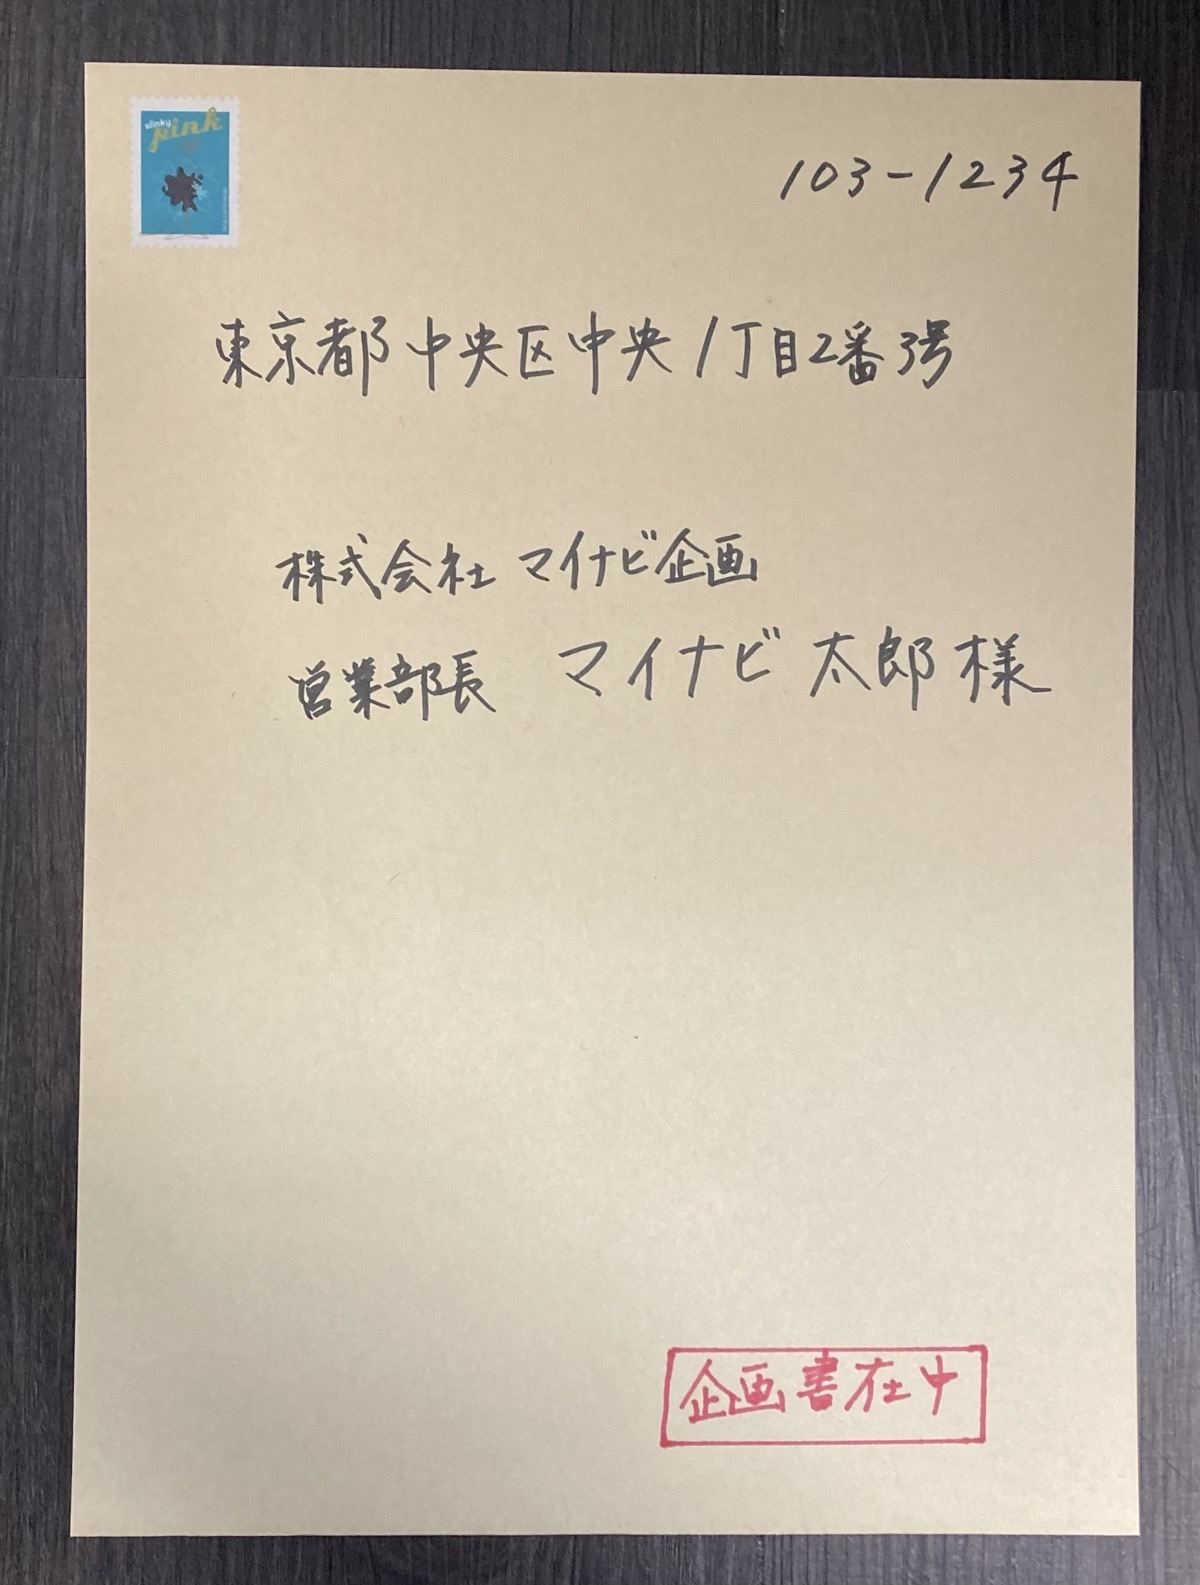 slinky
pink
103-1234
東京都中央区中央1丁目2番3号
株式会社 マイナビ企画
営業部長 マイナビ 太郎 様
企画書在中